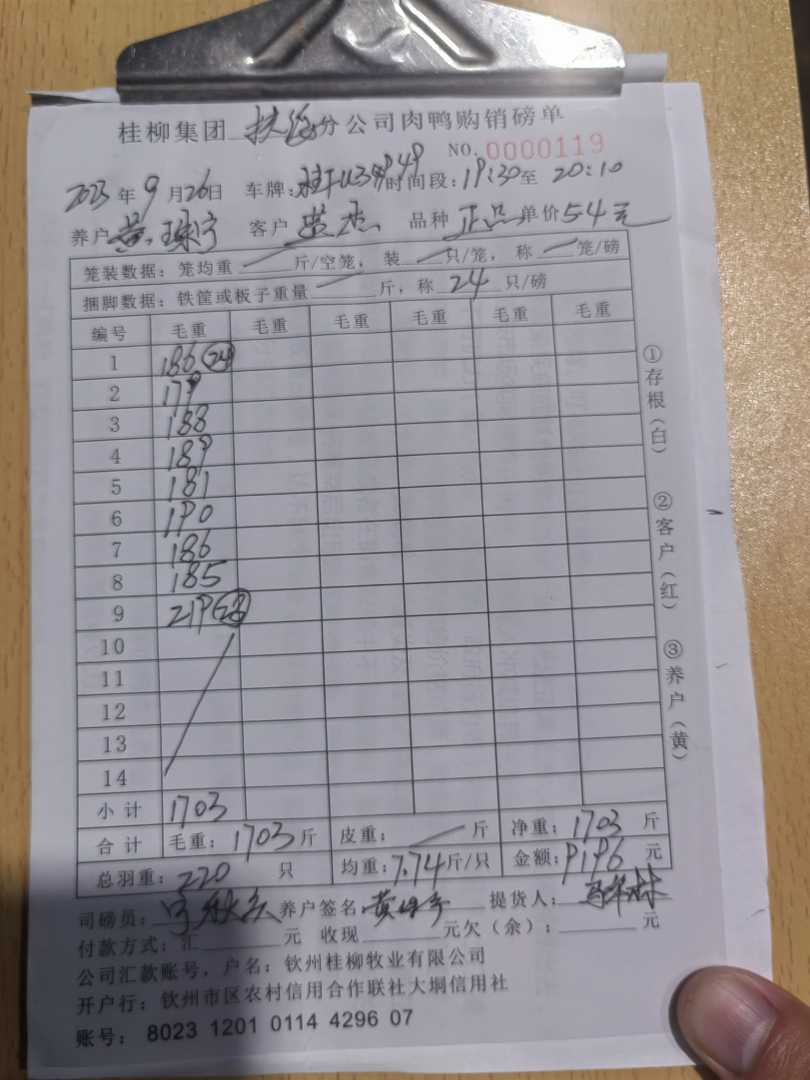 桂柳集团 扶绥 分公司肉鸭购销磅单
NO. 0000119
2023 年 9 月 26 日 车牌: 时间段: 19:30 至 20:10
养户 黄 客户 品种 正品 单价 5.4元
笼装数据: 笼均重 — 斤/空笼, 装 — 只/笼, 称 — 笼/磅
捆脚数据: 铁筐或板子重量 — 斤, 称 24 只/磅
编号 毛重 毛重 毛重 毛重 毛重 毛重
1 186 (24)
2 179
3 188
4 189
5 181
6 190
7 186
8 185
9 219 (28)
10
11
12
13
14
小计 1703
合计 毛重: 1703 斤 皮重: — 斤 净重: 1703 斤
总羽重: 220 只 均重: 7.74 斤/只 金额: 9196 元
司磅员: 养户签名: 黄 提货人:
付款方式: 汇 元 收现 元欠(余): 元
公司汇款账号, 户名: 钦州桂柳牧业有限公司
开户行: 钦州市区农村信用合作联社大垌信用社
账号: 8023 1201 0114 4296 07
①存根(白) ②客户(红) ③养户(黄)